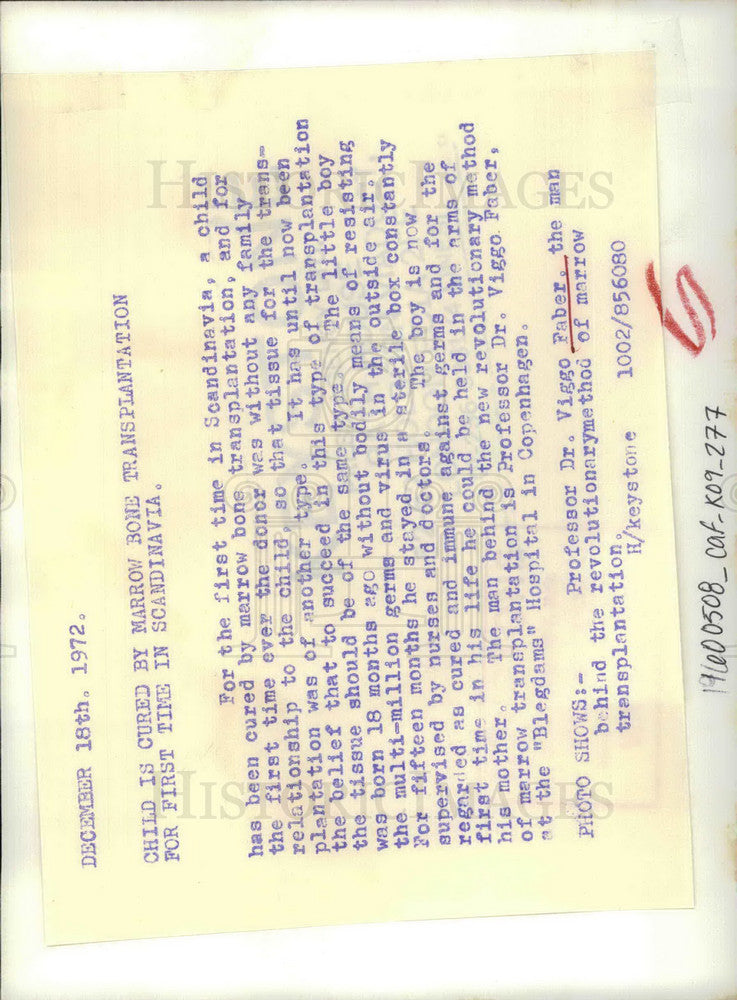 DECEMBER 18th. 1972.
CHILD IS CURED BY MARROW BONE TRANSPLANTATION
FOR FIRST TIME IN SCANDINAVIA.
For the first time in Scandinavia, a child
has been cured by marrow bone transplantation, and for
the first time ever the donor was without any family
relationship to the child, so that tissue for the trans-
plantation was of another type. It has until now been
the belief that to succeed in this type of transplantation
the tissue should be of the same type. The little boy
was born 18 months ago without bodily means of resisting
the multi-million germs and virus in the outside air.
For fifteen months he stayed in a sterile box constantly
supervised by nurses and doctors. The boy is now
regarded as cured and immune against germs and for the
first time in his life he could be held in the arms of
his mother. The man behind the new revolutionary method
of marrow transplantation is Professor Dr. Viggo Faber,
at the "Blegdams" Hospital in Copenhagen.
PHOTO SHOWS:- Professor Dr. Viggo Faber, the man
behind the revolutionarymethod of marrow
transplantation.
H/keystone 1002/856080
19600508_CAF-K09-277
HISTORIC IMAGES
HISTORIC IMAGES